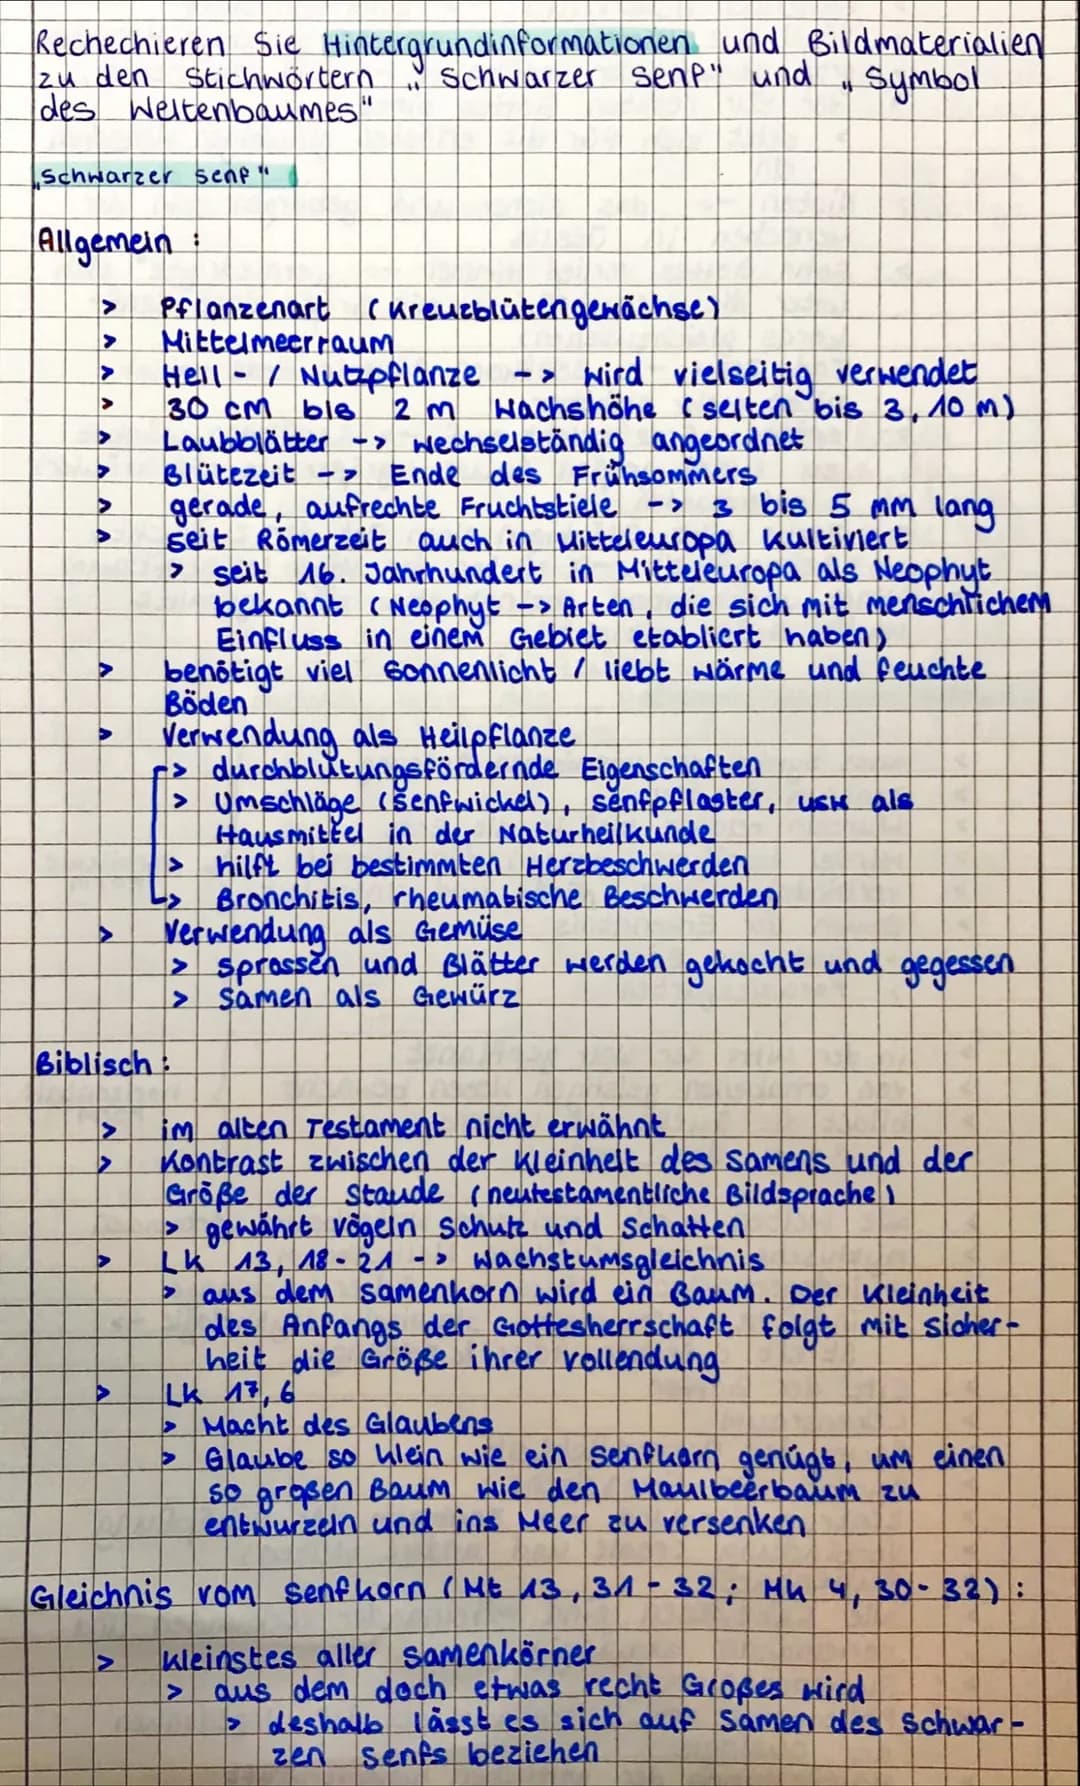 Rechechieren Sie Hintergrundinformationen und Bildmaterialien
zu den Stichwörtern „ Schwarzer Senf" und „ Symbol
des Weltenbaumes"
„Schwarzer Senf"
Allgemein :
> Pflanzenart (Kreuzblütengewächse)
> Mittelmeerraum
> Heil- / Nutzpflanze --> wird vielseitig verwendet
> 30 cm bis 2 m Wachshöhe (selten bis 3,10 m)
> Laubblätter --> wechselständig angeordnet
> Blütezeit --> Ende des Frühsommers
> gerade, aufrechte Fruchtstiele --> 3 bis 5 mm lang
> seit Römerzeit auch in Mitteleuropa kultiviert
> seit 16. Jahrhundert in Mitteleuropa als Neophyt
bekannt (Neophyt --> Arten, die sich mit menschlichem
Einfluss in einem Gebiet etabliert haben)
> benötigt viel Sonnenlicht / liebt Wärme und feuchte
Böden
> Verwendung als Heilpflanze
> durchblutungsfördernde Eigenschaften
> Umschläge (Senfwickel), Senfpflaster, usw als
Hausmittel in der Naturheilkunde
> hilft bei bestimmten Herzbeschwerden
> Bronchitis, rheumatische Beschwerden
> Verwendung als Gemüse
> Sprossen und Blätter werden gekocht und gegessen
> Samen als Gewürz
Biblisch :
> im alten Testament nicht erwähnt
> Kontrast zwischen der Kleinheit des Samens und der
Größe der Staude (neutestamentliche Bildsprache)
> gewährt Vögeln Schutz und Schatten
> Lk 13, 18-21 --> Wachstumsgleichnis
> aus dem Samenkorn wird ein Baum. Der Kleinheit
des Anfangs der Gottesherrschaft folgt mit Sicher-
heit die Größe ihrer Vollendung
> Lk 17,6
> Macht des Glaubens
> Glaube so klein wie ein Senfkorn genügt, um einen
so großen Baum wie den Maulbeerbaum zu
entwurzeln und ins Meer zu versenken
Gleichnis vom Senfkorn (Mt 13, 31-32; Mk 4, 30-32) :
> kleinstes aller Samenkörner
> aus dem doch etwas recht Großes wird
> deshalb lässt es sich auf Samen des Schwar-
zen Senfs beziehen